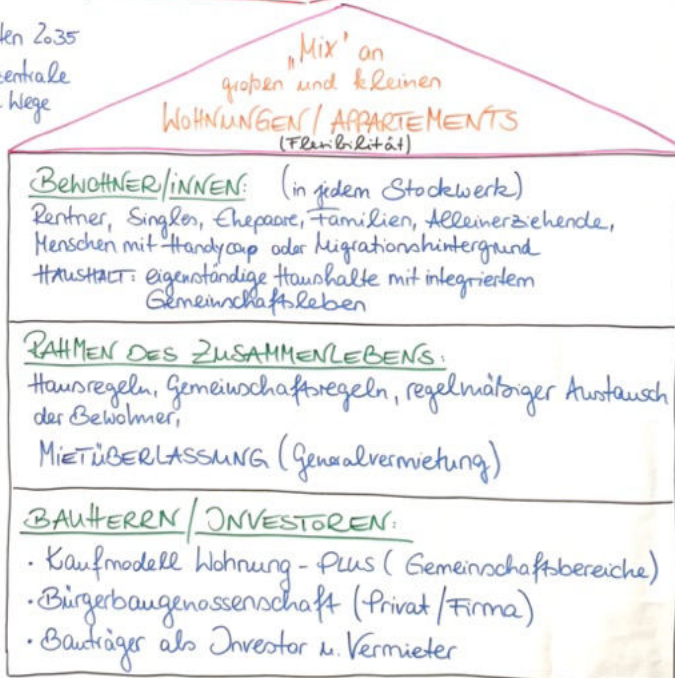 2035
zentrale
Wege
„Mix' an
großen und kleinen
WOHNUNGEN / APPARTEMENTS
(Flexibilität)
BEWOHNER/INNEN: (in jedem Stockwerk)
Rentner, Singles, Ehepaare, Familien, Alleinerziehende,
Menschen mit Handycap oder Migrationshintergrund
HAUSHALT: eigenständige Haushalte mit integriertem
Gemeinschaftsleben
RAHMEN DES ZUSAMMENLEBENS:
Hausregeln, Gemeinschaftsregeln, regelmäßiger Austausch
der Bewohner,
MIETÜBERLASSUNG (Generalvermietung)
BAUHERRN / INVESTOREN:
· Kaufmodell Wohnung - PLUS (Gemeinschaftsbereiche)
· Bürgerbaugenossenschaft (Privat / Firma)
· Bauträger als Investor u. Vermieter